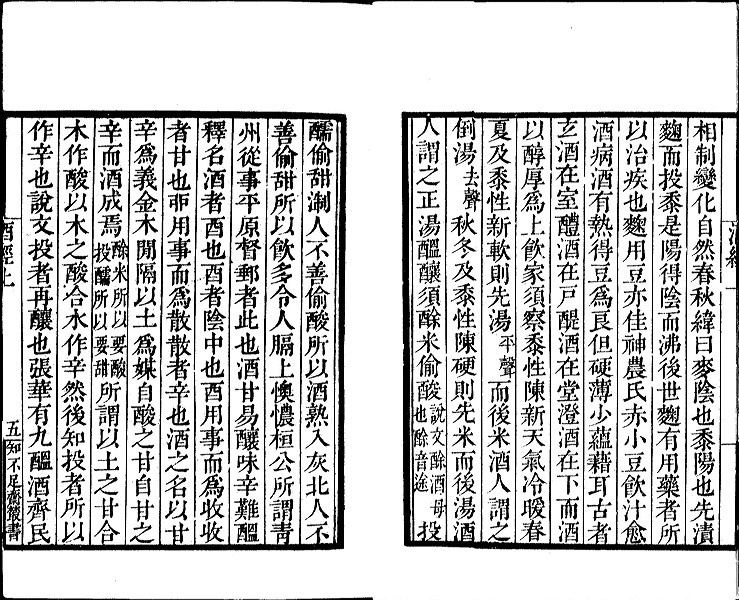 相制變化自然春秋緯曰麥陰也黍陽也先漬
麴而投黍是陽得陰而沸後世麴有用藥者所
以治疾也麴用豆亦佳神農氏赤小豆飲汁愈
酒病酒有熱得豆為良但硬薄少蘊藉耳古者
玄酒在室醴酒在戶醍酒在堂澄酒在下而酒
以醇厚為上飲家須察黍性陳新天氣冷暖春
夏及黍性新軟則先湯平聲而後米酒人謂之
倒湯去聲秋冬及黍性陳硬則先米而後湯酒
人謂之正湯醞釀須酴米偷酸說文酴酒母也酴音途投
醹偷甜淛人不善偷酸所以酒熟入灰北人不
善偷甜所以飲多令人膈上懊憹桓公所謂青
州從事平原督郵者此也酒甘易釀味辛難醞
釋名酒者酉也酉者陰中也酉用事而為收收
者甘也卯用事而為散散者辛也酒之名以甘
辛為義金木間隔以土為媒自酸之甘自甘之
辛而酒成焉酴米所以要酸投醹所以要甜所謂以土之甘合
木作酸以木之酸合水作辛然後知投者所以
作辛也說文投者再釀也張華有九醞酒齊民
酒經上
五
知不足齋叢書